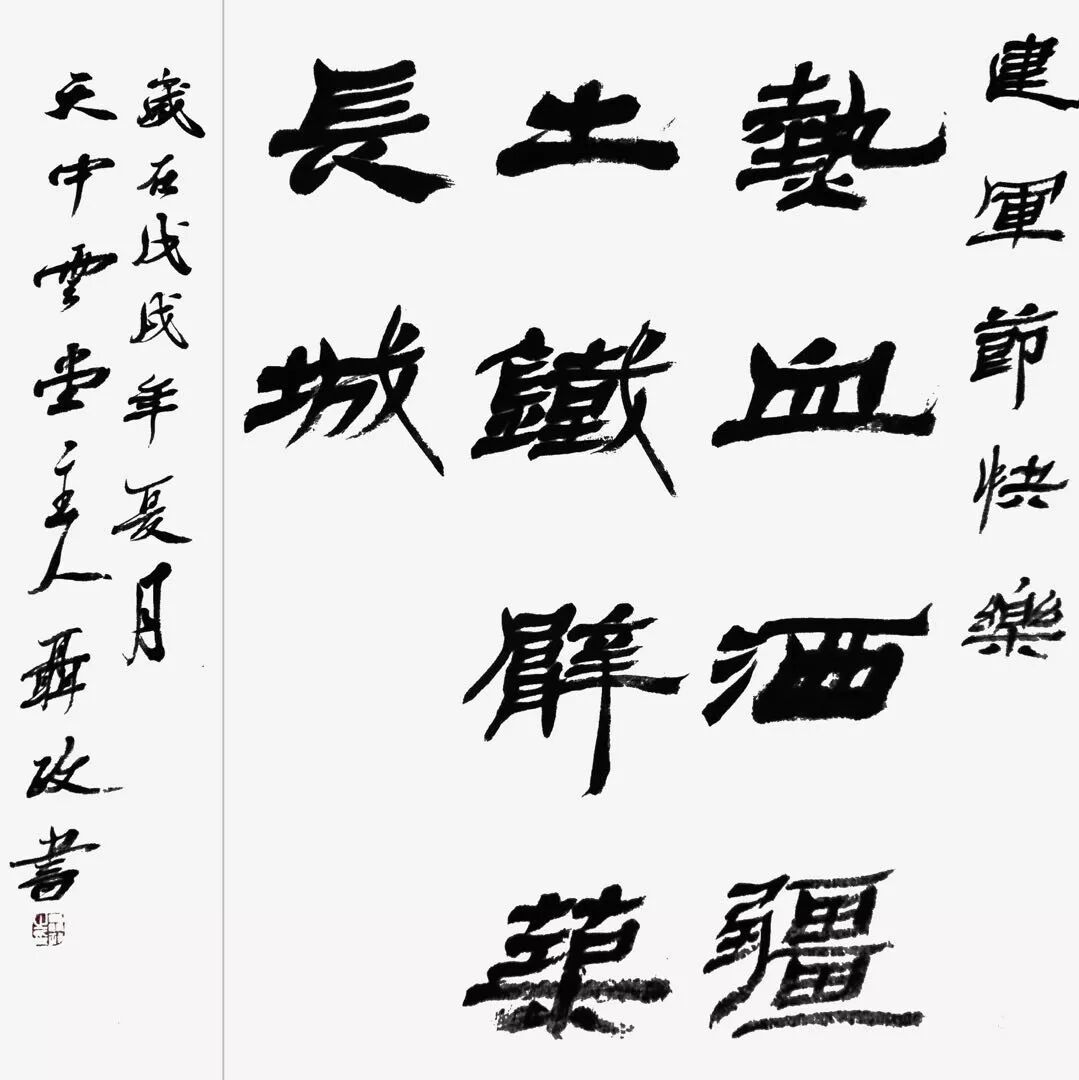 建軍節快樂
熱血洒疆
土鐵臂築
長城
歲在戊戌年夏月
天中雲堂主人聶改書